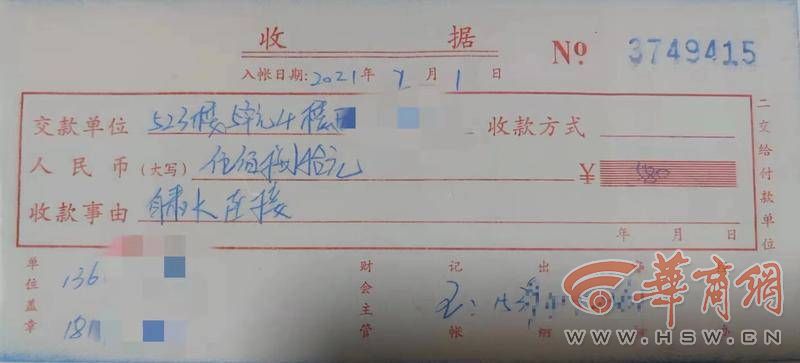 收 据 Nº 3749415
入帐日期:2021年 7月 1日
交款单位 523楼5单元4楼西 收款方式
人民币(大写) 伍佰捌拾元 ¥ 580
收款事由 自来水连接
年 月 日
二交给付款单位
单位盖章 136
181
财会主管 记帐 出纳
王:153
華商網
WWW.HSW.CN